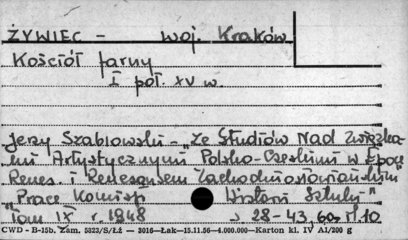 ŻYWIEC - woj. Kraków
Kościół farny
I poł. XV w.
Jerzy Szablowski - „Ze Studiów Nad Związka-
mi Artystycznymi Polsko-Czeskimi w Epoce
Renes. i Renesansem Zachodniosłowiańskim"
„Prace Komisji Historii Sztuki"
Tom IX r. 1948 s. 28-43, 60, il. 10
CWD - B-15b, Zam. 5323/S/Łż - 3016-Łak-15.11.56-4.000.000-Karton kl. IV A1/200 g